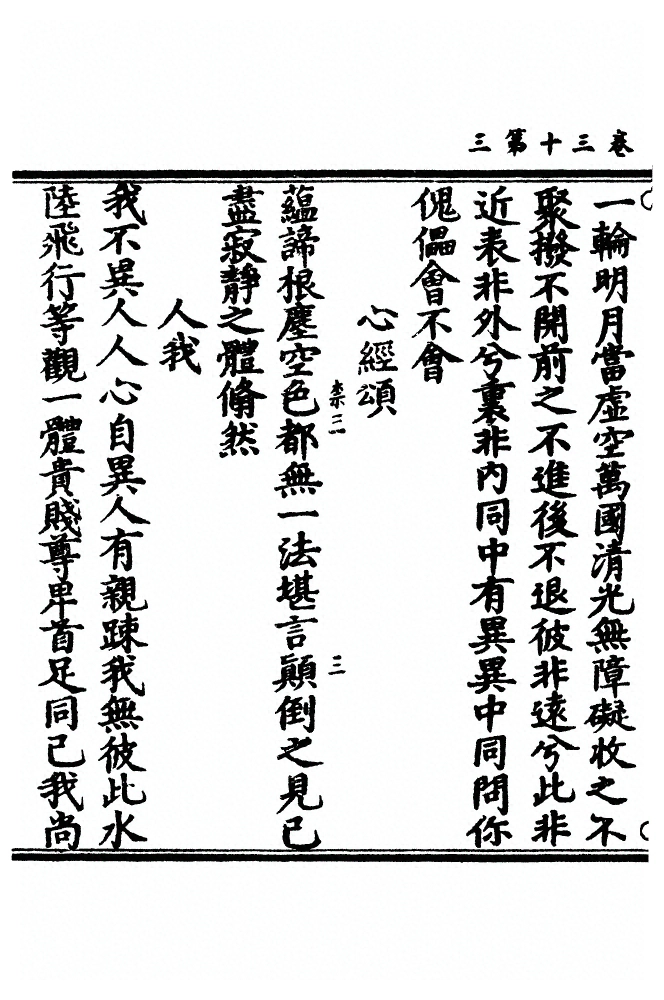 卷三十第三
一輪明月當虛空萬國清光無障礙收之不
聚撥不開前之不進後不退彼非遠兮此非
近表非外兮裏非內同中有異異中同問你
傀儡會不會
心經頌
柰三
三
蘊諦根塵空色都無一法堪言顛倒之見已
盡寂靜之體翛然
人我
我不異人人心自異人有親踈我無彼此水
陸飛行等觀一體貴賤尊卑首足同己我尚